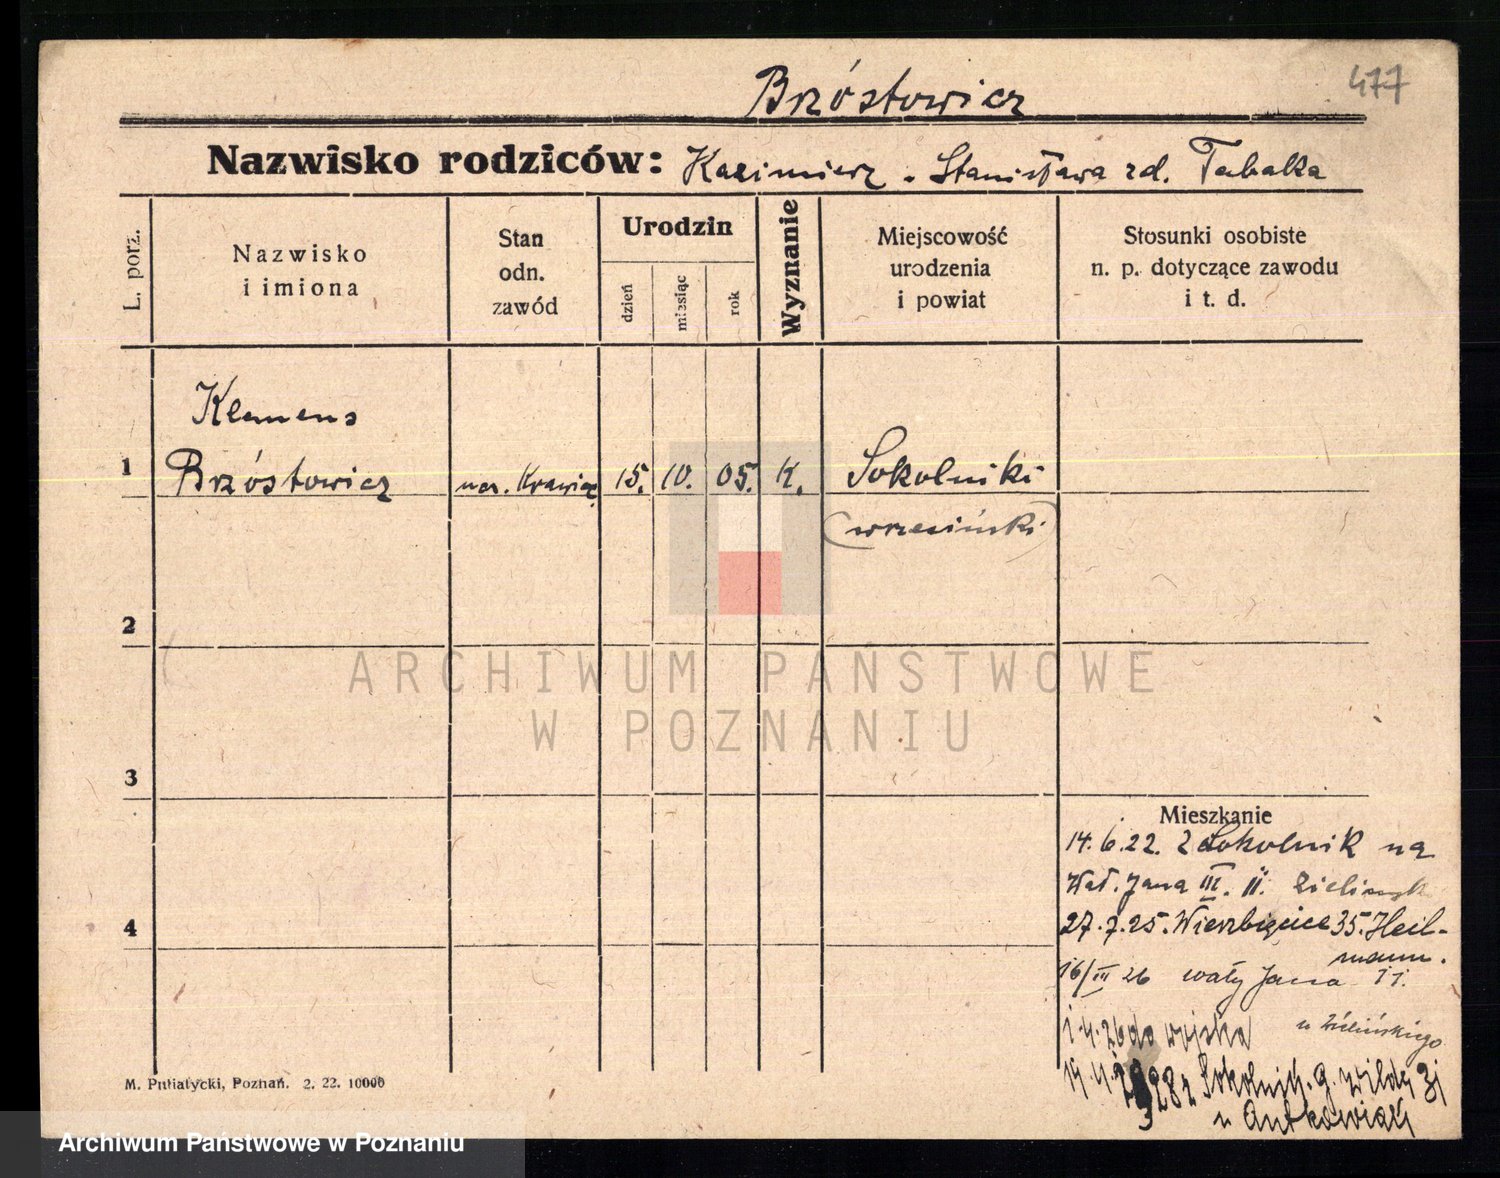 477
Brzóstowicz
Nazwisko rodziców: Kazimierz - Stanisława zd. Tabałka
L. porz.
Nazwisko
i imiona
Stan
odn.
zawód
Urodzin
dzień
miesiąc
rok
Wyznanie
Miejscowość
urodzenia
i powiat
Stosunki osobiste
n. p. dotyczące zawodu
i t. d.
Klemens
1 Brzóstowicz ucz. Krawiec 15. 10. 05. K. Sokolniki
(wrzesiński)
2
3
4
Mieszkanie
14. 6. 22. z Sokolnik na
Wał. Jana III. 11. Zielińsk
27. 7. 25. Wierzbięcice 35. Heil-
mann.
16/III 26 wały Jana 11.
u Zielińskiego
1. 4. 26 do wojska
28 z Sokolnik. g. Wildy 31
u Antkowiak
M. Putiatycki, Poznań. 2. 22. 10000
ARCHIWUM PAŃSTWOWE
W POZNANIU
Archiwum Państwowe w Poznaniu